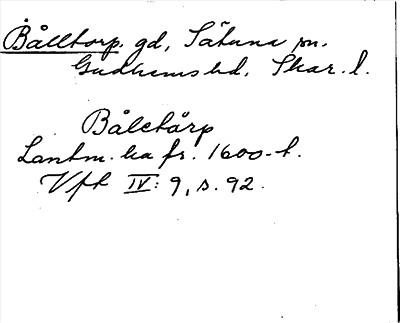 Bålltorp. gd, Sätuna sn.
Gudhems hd, Skar. l.
Båletårp
Lantm. ka fr. 1600-t.
Vft IV: 9, s. 92.